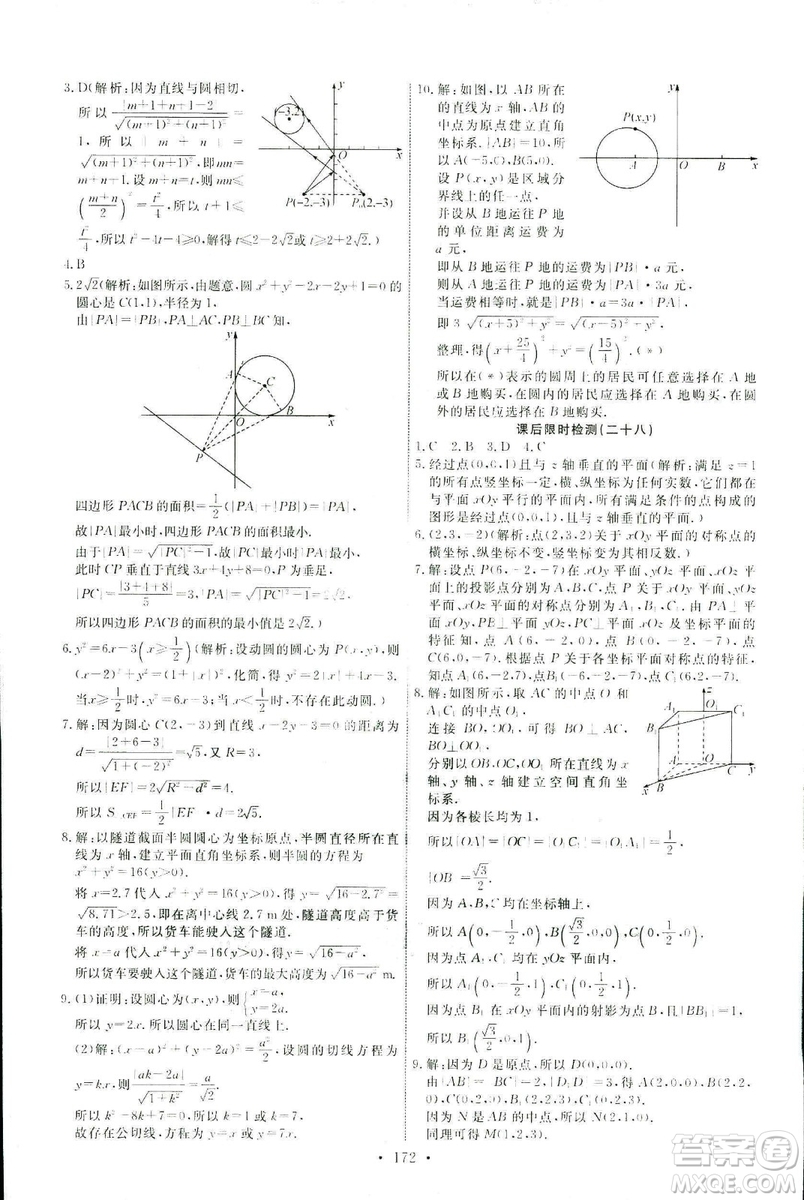 3. D(解析：因为直线与圆相切，
所以 |m+1+n+1-2| / √((m+1)²+(n+1)²) =
1，所以 |m+n| =
√((m+1)²+(n+1)²)，即mn=
m+n+1，设m+n=t，则mn≤
((m+n)/2)²=t²/4，所以t+1≤
t²/4，所以t²-4t-4≥0，解得t≤2-2√2或t≥2+2√2.)
(-3,2)
y
O
x
P(-2,-3)
P₀(2,-3)
4. B
5. 2√2(解析：如图所示，由题意，圆x²+y²-2x-2y+1=0的
圆心是C(1,1)，半径为1，
由|PA|=|PB|，PA⊥AC，PB⊥BC知，
y
A
C
O
B
x
P
四边形PACB的面积=1/2(|PA|+|PB|)=|PA|，
故|PA|最小时，四边形PACB的面积最小.
由于|PA|=√(|PC|²-1)，故|PC|最小时|PA|最小，
此时CP垂直于直线3x+4y+8=0，P为垂足，
|PC|=|3+4+8|/5=3，|PA|=√(|PC|²-1)=2√2，
所以四边形PACB的面积的最小值是2√2.)
6. y²=6x-3(x≥1/2)(解析：设动圆的圆心为P(x,y)，则
(x-2)²+y²=(|x|+1)²，化简，得y²=2|x|+4x-3.
当x≥1/2时，y²=6x-3；当x<1/2时，无轨迹.)
7. 解：因为圆心C(2，-3)到直线x-2y-3=0的距离为
d=|2+6-3|/√(1+(-2)²)=√5，又R=3，
所以|EF|=2√(R²-d²)=4.
所以S△CEF=1/2|EF|·d=2√5.
8. 解：以隧道截面半圆圆心为坐标原点，半圆直径所在直
线为x轴，建立平面直角坐标系，则半圆的方程为
x²+y²=16(y≥0).
将x=2.7代入x²+y²=16(y≥0)，得y=√(16-2.7²)=
√8.71>2.5，即在离中心线2.7m处，隧道高度高于货
车的高度，所以货车能驶入这个隧道.
将x=a代入x²+y²=16(y≥0)，得y=√(16-a²)，
所以货车要驶入这个隧道，货车的最大高度为√(16-a²)m.
9. (1)证明：设圆心为(x,y)，则{x=a，y=2a，
所以y=2x，所以圆心在同一直线上.
(2)解：(x-a)²+(y-2a)²=a²/2，设圆的切线方程为
y=kx，则|ak-2a|/√(1+k²)=a/√2，
所以k²-8k+7=0，所以k=1或k=7，
故存在公切线，方程为y=x或y=7x.
10. 解：如图，以AB所在
的直线为x轴，AB的
中点为原点建立直角
坐标系.|AB|=10，所
以A(-5,0)，B(5,0).
设P(x,y)是区域分
界线上的任一点，
并设从B地运往P地的
的单位距离运费为a元，
y
P(x,y)
A
O
B
x
即从B地运往P地的运费为|PB|·a元，
则从A地运往P地的运费为|PA|·3a元，
当运费相等时，|PB|·a=3a·|PA|，
即3√((x+5)²+y²)=√((x-5)²+y²)，
整理，得(x+25/4)²+y²=(15/4)².(*)
所以在(*)表示的圆周上的居民可任意选择在A地
或B地购买，在圆内的居民应选择在A地购买，在圆
外的居民应选择在B地购买.
课后限时检测(二十八)
1. C 2. B 3. D 4. C
5. 经过点(0,0,1)且与z轴垂直的平面(解析：满足z=1
的所有点竖坐标一定，横、纵坐标为任何实数，它们在
与平面xOy平行的平面内，所有满足条件的点构成的
图形是经过点(0,0,1)且与z轴垂直的平面.)
6. (2,3,-2)(解析：点关于xOy平面的对称点的
横坐标、纵坐标不变，竖坐标变为其相反数.)
7. 解：设点P(6,-2,-7)在xOy平面、yOz平面、xOz平
面上的投影点分别为A,B,C，点P关于xOy平面、
yOz平面、xOz平面的对称点分别为A₁,B₁,C₁，由PA⊥平面
xOy，PB⊥平面yOz，PC⊥平面xOz及坐标平面上的点的
特征知，点A(6,-2,0)，点B(0,-2,-7)，点
C(6,0,-7).根据点P关于各平面对称点的特征，
知点A₁(6,-2,7)，B₁(-6,-2,-7)，C₁(6,2,-7).
8. 解：如图所示，取AC的中点O和
A₁C₁的中点O₁，
连接BO，OO₁，可得BO⊥AC，
BO⊥OO₁.
分别以OB,OC,OO₁所在直线为x
轴、y轴、z轴建立空间直角坐
标系.
z
A₁
O₁
C₁
B₁
A
O
C
y
B
x
因为各棱长均为1，
所以|OA|=|OC|=|O₁C₁|=|O₁A₁|=1/2，
|OB|=√3/2.
因为A,B,C均在坐标轴上，
所以A(0,-1/2,0)，B(√3/2,0,0)，C(0,1/2,0).
因为点A₁,C₁在yOz平面内，
所以A₁(0,-1/2,1)，C₁(0,1/2,1).
因为点B₁在xOy平面内的射影为点B，且|BB₁|=1，
所以B₁(√3/2,0,1).
9. 解：因为D是原点，所以D(0,0,0).
由|AB|=|BC|=2，|D₁D|=3，得A(2,0,0)，B(2,2,
0)，C(0,2,0)，B₁(2,2,3)，D₁(0,0,3).
因为N是AB的中点，所以N(2,1,0).
同理可得M(1,2,3).
· 172 ·
答案圈
MXQE.COM